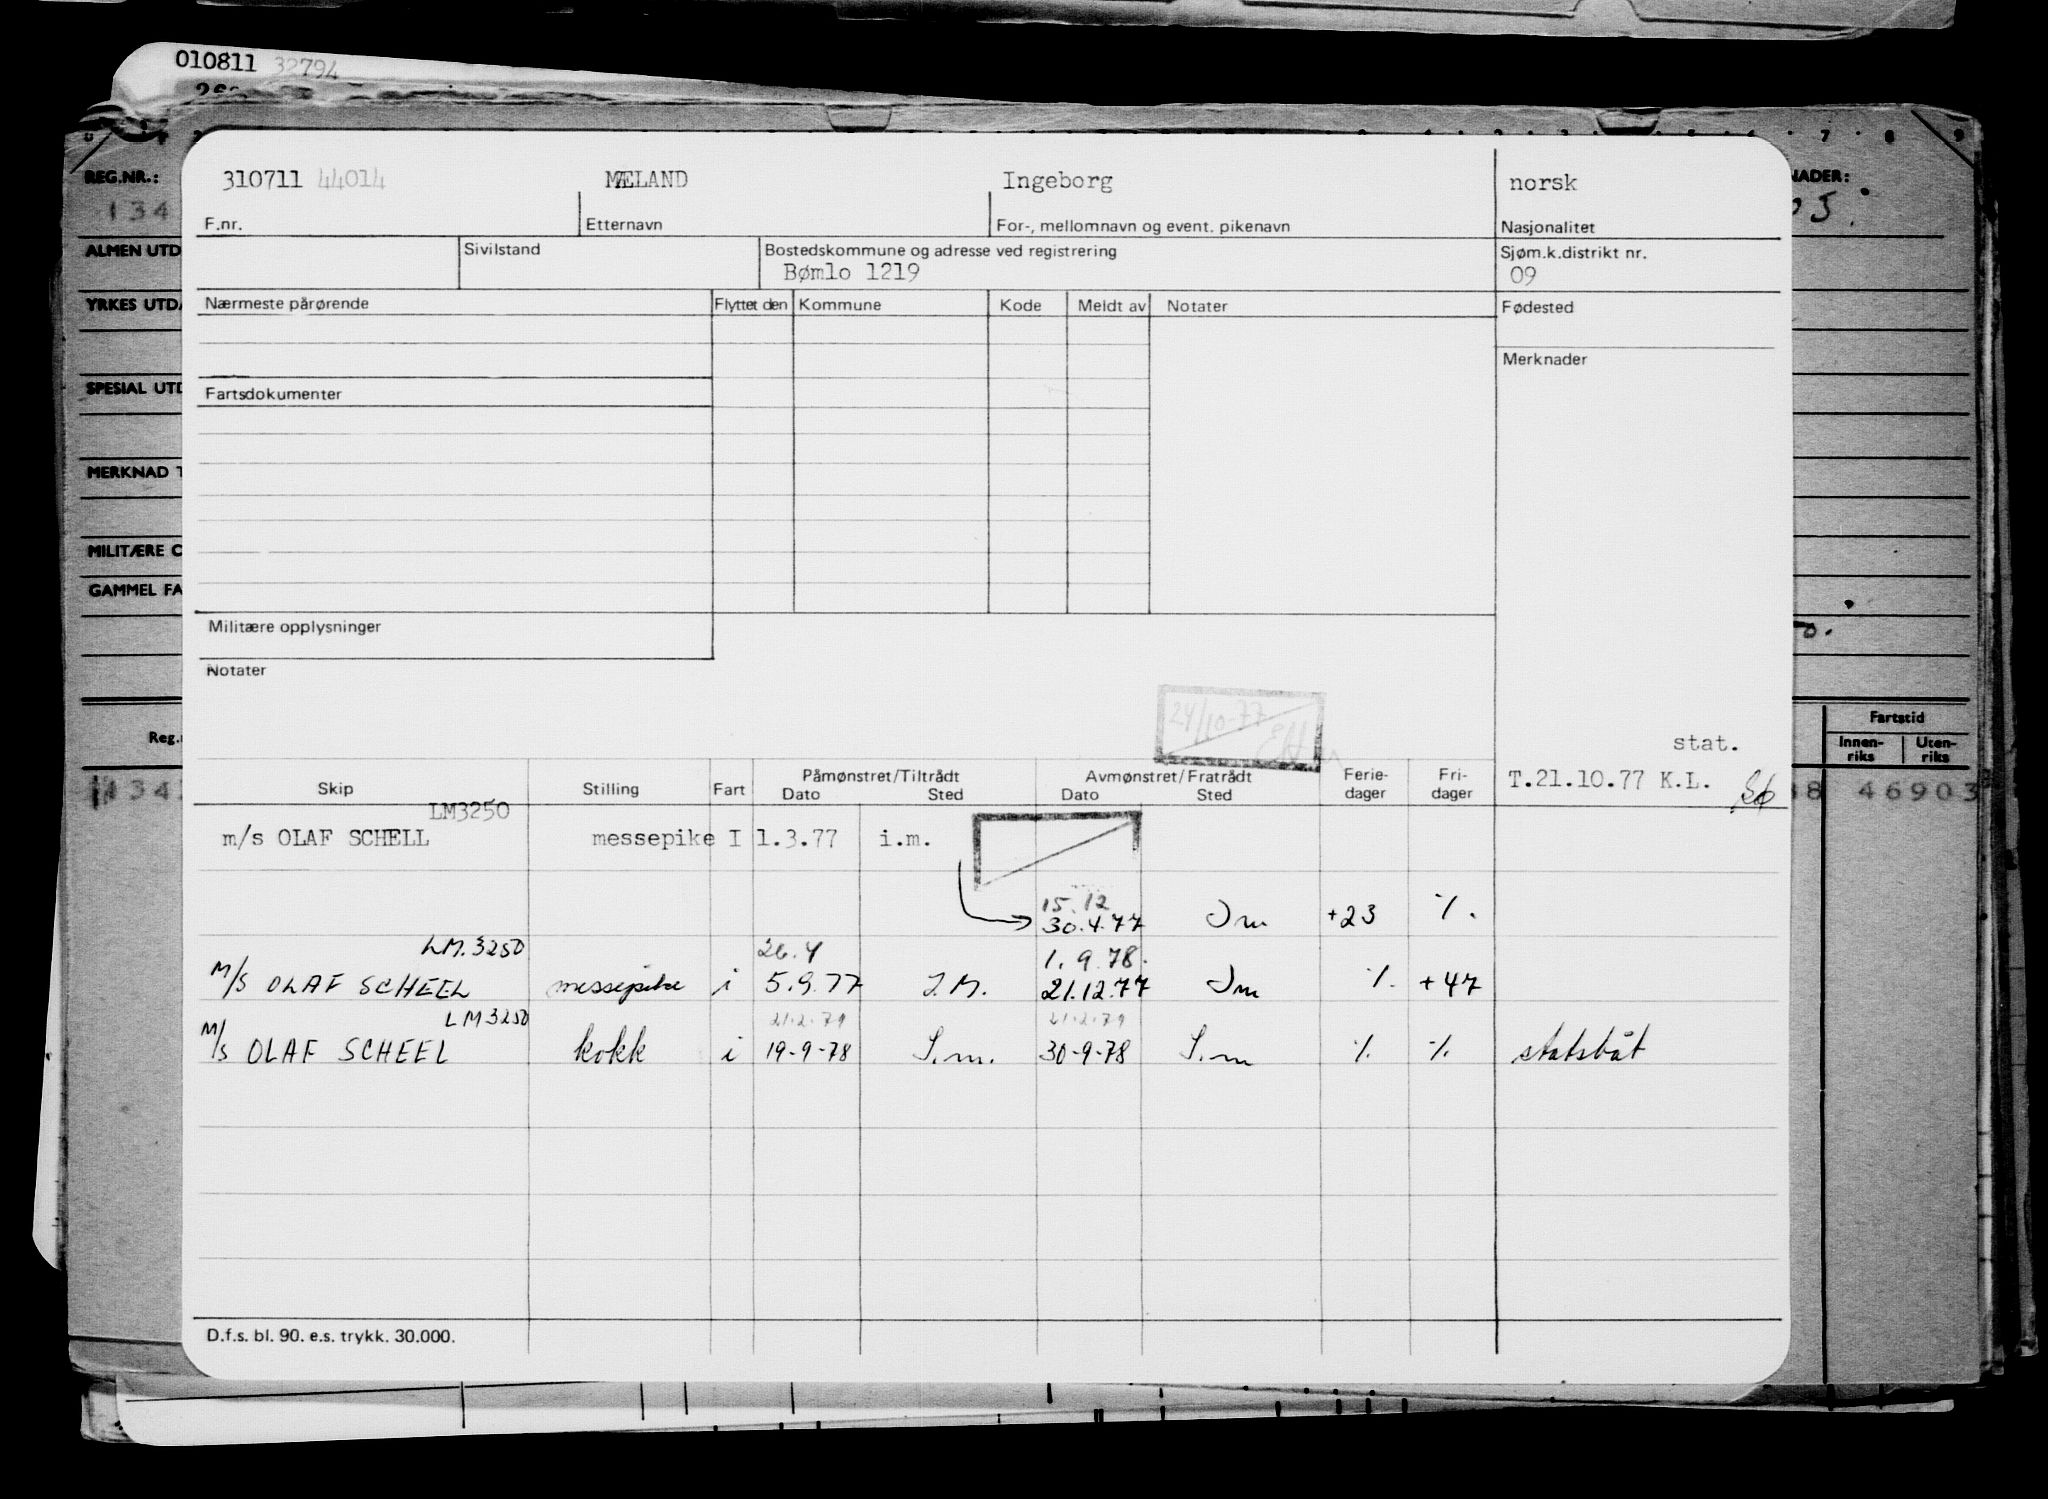 010811 32794
REG.NR.:
134
ALMEN UTD
YRKES UTDA
SPESIAL UTD
MERKNAD T
MILITÆRE O
GAMMEL FA
Reg.
NADER:
7 8 9
Fartstid
Innen-riks Uten-riks
46903
310711 44014 MÆLAND Ingeborg norsk
F.nr. Etternavn For-, mellomnavn og event. pikenavn Nasjonalitet
Sivilstand Bostedskommune og adresse ved registrering Sjøm.k.distrikt nr.
Bømlo 1219 09
Nærmeste pårørende Flyttet den Kommune Kode Meldt av Notater Fødested
Merknader
Fartsdokumenter
Militære opplysninger
Notater
24/10-77
stat.
Skip Stilling Fart Påmønstret/Tiltrådt Avmønstret/Fratrådt Ferie-dager Fri-dager T.21.10.77 K.L.
Dato Sted Dato Sted
LM3250
m/s OLAF SCHELL messepike I 1.3.77 i.m.
15.12
30.4.77 Im +23 %.
LM.3250 26.4 1.9.78.
M/S OLAF SCHEEL messepike i 5.9.77 I.M. 21.12.77 Im %. +47
LM3250 21.2.79 21.2.79
M/S OLAF SCHEEL kokk i 19-9-78 I.m. 30-9-78 I.m %. %. statsbåt
D.f.s. bl. 90. e.s. trykk. 30.000.